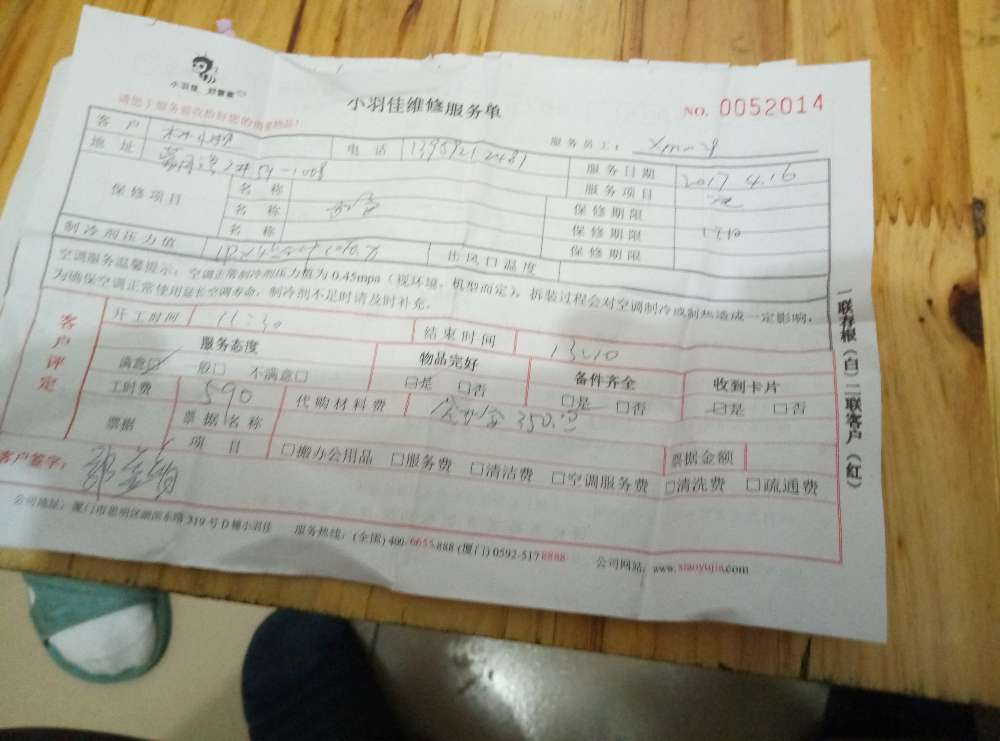 小羽佳 好管家
小羽佳维修服务单
NO. 0052014
请您于服务前收拾好您的贵重物品!
服务员工:
客户 电话 服务日期 2017 4.16
地址 服务项目
保修项目 名称 保修期限
名称 保修期限
名称 保修期限
制冷剂压力值 出风口温度
空调服务温馨提示:空调正常制冷剂压力值为0.45mpa(视环境、机型而定),拆装过程会对空调制冷或制热造成一定影响,
为确保空调正常使用延长空调寿命,制冷剂不足时请及时补充.
客户评定
开工时间 11:30 结束时间 13:10
服务态度 物品完好 备件齐全 收到卡片
满意□ 一般□ 不满意□ □是 □否 □是 □否 □是 □否
工时费 590 代购材料费 350
票据 票据名称 票据金额
项目 □搬办公用品 □服务费 □清洁费 □空调服务费 □清洗费 □疏通费
客户签字:
公司地址:厦门市思明区湖滨东路319号D栋小羽佳 服务热线:(全国)400-6655-888 (厦门)0592-5178888 公司网站:www.xiaoyujia.com
一联存根(白)二联客户(红)